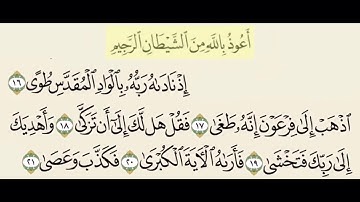 أَعُوذُ بِاللَّهِ مِنَ الشَّيْطَانِ الرَّجِيمِ
إِذْ نَادَىٰهُ رَبُّهُۥ بِالْوَادِ الْمُقَدَّسِ طُوًى ١٦
اذْهَبْ إِلَىٰ فِرْعَوْنَ إِنَّهُۥ طَغَىٰ ١٧ فَقُلْ هَل لَّكَ إِلَىٰٓ أَن تَزَكَّىٰ ١٨ وَأَهْدِيَكَ
إِلَىٰ رَبِّكَ فَتَخْشَىٰ ١٩ فَأَرَىٰهُ الْآيَةَ الْكُبْرَىٰ ٢٠ فَكَذَّبَ وَعَصَىٰ ٢١